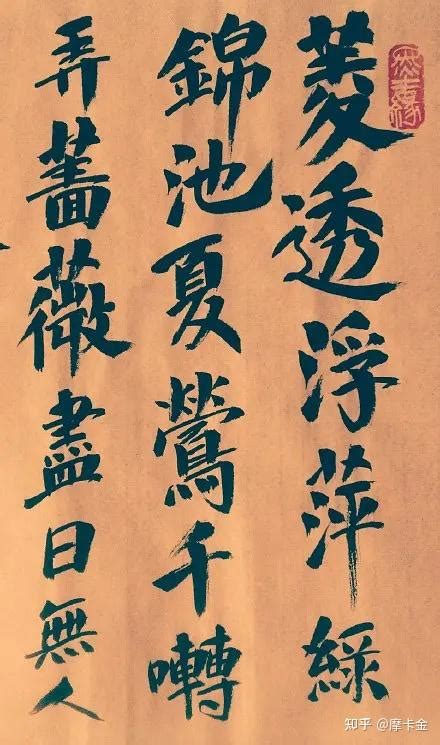 菱透浮萍綠
錦池夏鶯千囀
弄薔薇盡日無人
知乎 @摩卡金